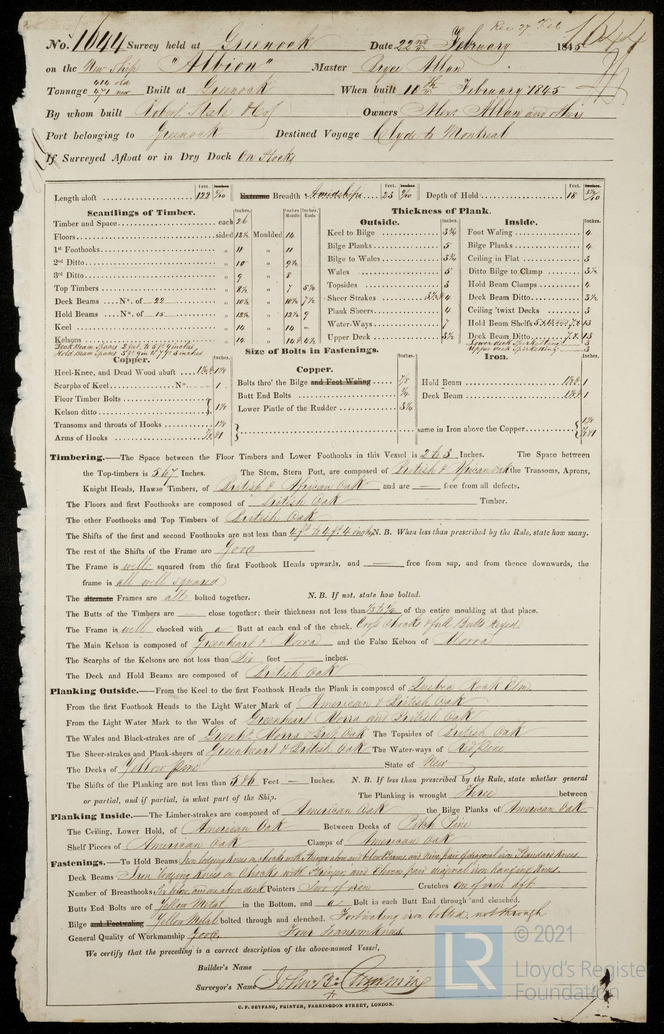 Rec 27 Feb
No. 1644 Survey held at Greenock Date 22nd February 1845
1644
on the New Ship "Albion" Master Bryce Allan
Tonnage 414 old 471 new Built at Greenock When built 10th February 1845
By whom built Robert Steele & Co Owners Alexr Allan and others
Port belonging to Greenock Destined Voyage Clyde to Montreal
If Surveyed Afloat or in Dry Dock On Stocks
Length aloft 122 Feet. Inches. Extreme Breadth Amidships 25 Feet. Inches. Depth of Hold 18 Feet. Inches.
Scantlings of Timber.
Timber and Space each 26
Floors sided 12½ Moulded 14
1st Foothooks " 11 " 11
2nd Ditto " 10 " 9½
3rd Ditto " 9 " 8
Top Timbers " 8½ " 7 5½
Deck Beams No. of 22 " 10½ " 10½ 7½
Hold Beams No. of 15 " 12½ " 12½ 9
Keel " 14 " 14
Kelsons " 14 " 14
Thickness of Plank.
Outside. Inside.
Keel to Bilge Foot Waling 4
Bilge Planks 5 Bilge Planks 4
Bilge to Wales Ceiling in Flat 3
Wales 5 Ditto Bilge to Clamp
Topsides 3 Hold Beam Clamps 4
Sheer Strakes 4 Deck Beam Ditto
Plank Sheers 4 Ceiling 'twixt Decks 3
Water-Ways 7 Hold Beam Shelfs 13
Upper Deck Deck Beam Ditto 13
Size of Bolts in Fastenings.
Copper.
Heel-Knee, and Dead Wood abaft
Scarphs of Keel No. 1
Floor Timber Bolts
Kelson ditto
Transoms and throats of Hooks
Arms of Hooks
Copper.
Bolts thro' the Bilge and Foot Waling
Butt End Bolts
Lower Pintle of the Rudder
Iron.
Hold Beam 1
Deck Beam 1
same in Iron above the Copper
Timbering.—The Space between the Floor Timbers and Lower Foothooks in this Vessel is 2 to 3 Inches. The Space between
the Top-timbers is 5 to 7 Inches. The Stem, Stern Post, are composed of British & African Oak the Transoms, Aprons,
Knight Heads, Hawse Timbers, of British & African Oak and are — free from all defects.
The Floors and first Foothooks are composed of British Oak Timber.
The other Foothooks and Top Timbers of British Oak
The Shifts of the first and second Foothooks are not less than 4ft to 4ft 4 inches N. B. When less than prescribed by the Rule, state how many.
The rest of the Shifts of the Frame are Good
The Frame is well squared from the first Foothook Heads upwards, and — free from sap, and from thence downwards, the
frame is all well squared
The alternate Frames are all bolted together. N. B. If not, state how bolted.
The Butts of the Timbers are — close together; their thickness not less than of the entire moulding at that place.
The Frame is well chocked with a Butt at each end of the chock.
The Main Kelson is composed of Greenheart & Morra and the False Kelson of Morra
The Scarphs of the Kelsons are not less than Six feet — inches.
The Deck and Hold Beams are composed of British Oak
Planking Outside.—From the Keel to the first Foothook Heads the Plank is composed of Quebec Rock Elm
From the first Foothook Heads to the Light Water Mark of American & British Oak
From the Light Water Mark to the Wales of Greenheart Morra and British Oak
The Wales and Black-strakes are of Greenht Morra & Brit. Oak The Topsides of British Oak
The Sheer-strakes and Plank-sheers of Greenheart & British Oak The Water-ways of Red Pine
The Decks of Yellow Pine State of New
The Shifts of the Planking are not less than 5 & 6 Feet — Inches. N. B. If less than prescribed by the Rule, state whether general
or partial, and if partial, in what part of the Ship. The Planking is wrought Three between
Planking Inside.—The Limber-strakes are composed of American Oak the Bilge Planks of American Oak
The Ceiling, Lower Hold, of American Oak Between Decks of Pitch Pine
Shelf Pieces of American Oak Clamps of American Oak
Fastenings.—To Hold Beams Iron lodging knees
Deck Beams Iron lodging knees
Number of Breasthooks Pointers Crutches One of iron aft.
Butts End Bolts are of Yellow Metal in the Bottom, and a Bolt in each Butt End through and clenched.
Bilge and Footwaling Yellow Metal bolted through and clenched. Footwaling iron bolted, not through
General Quality of Workmanship Good. Four transom knees.
We certify that the preceding is a correct description of the above-named Vessel,
Builder's Name
Surveyor's Name
C. F. SEYFANG, PRINTER, FARRINGDON STREET, LONDON.
LR © 2021
Lloyd's Register
Foundation